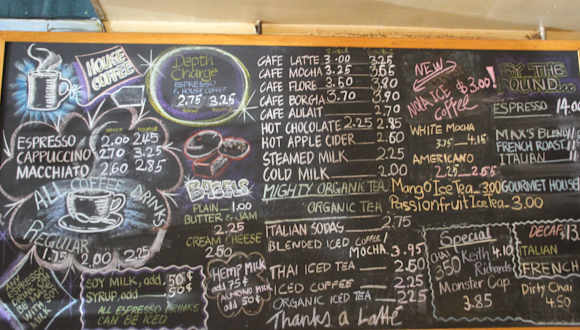 HOUSE
COFFEE
ESPRESSO 2.00 2.45
CAPPUCCINO 2.70 3.25
MACCHIATO 2.60 2.85
ALL COFFEE DRINKS
REGULAR
1.75 2.00 2.25
WITH
MILK
SOY MILK, add. 50¢
SYRUP, add 50¢
ALL ESPRESSO DRINKS
CAN BE ICED
Depth
Charge
ESPRESSO
HOUSE COFFEE
2.75 3.25
BAGELS
PLAIN 1.00
BUTTER & JAM
2.25
CREAM CHEESE
2.50
Hemp MILK
add 75¢
ALMOND MILK
add 50¢
CAFE LATTE 3.00 3.25
CAFE MOCHA 3.25 3.65
CAFE FLORE 3.50 3.80
CAFE BORGIA 3.70 3.90
CAFE AULAIT 2.70
HOT CHOCOLATE 2.25 2.85
HOT APPLE CIDER 2.60
STEAMED MILK 2.25
COLD MILK 2.00
MIGHTY ORGANIC TEA
ORGANIC TEA
ITALIAN SODAS 2.75
BLENDED ICED COFFEE/
MOCHA 3.95
THAI ICED TEA 2.50
ICED COFFEE 2.25
ORGANIC ICED TEA 2.25
Thanks a Latte
NEW
$3.00!
ICE
COFFEE
WHITE MOCHA
3.75 4.15
AMERICANO
2.25 2.55
Mango Ice Tea 3.00
Passionfruit Ice Tea 3.00
Special
3.50
Keith 4.10
Richards
Monster Cap
3.85
BY THE
POUND
ESPRESSO 14.00
MAX'S BLEND
FRENCH ROAST
ITALIAN
GOURMET HOUSE
DECAF 13.
ITALIAN
FRENCH
Dirty Chai
4.50